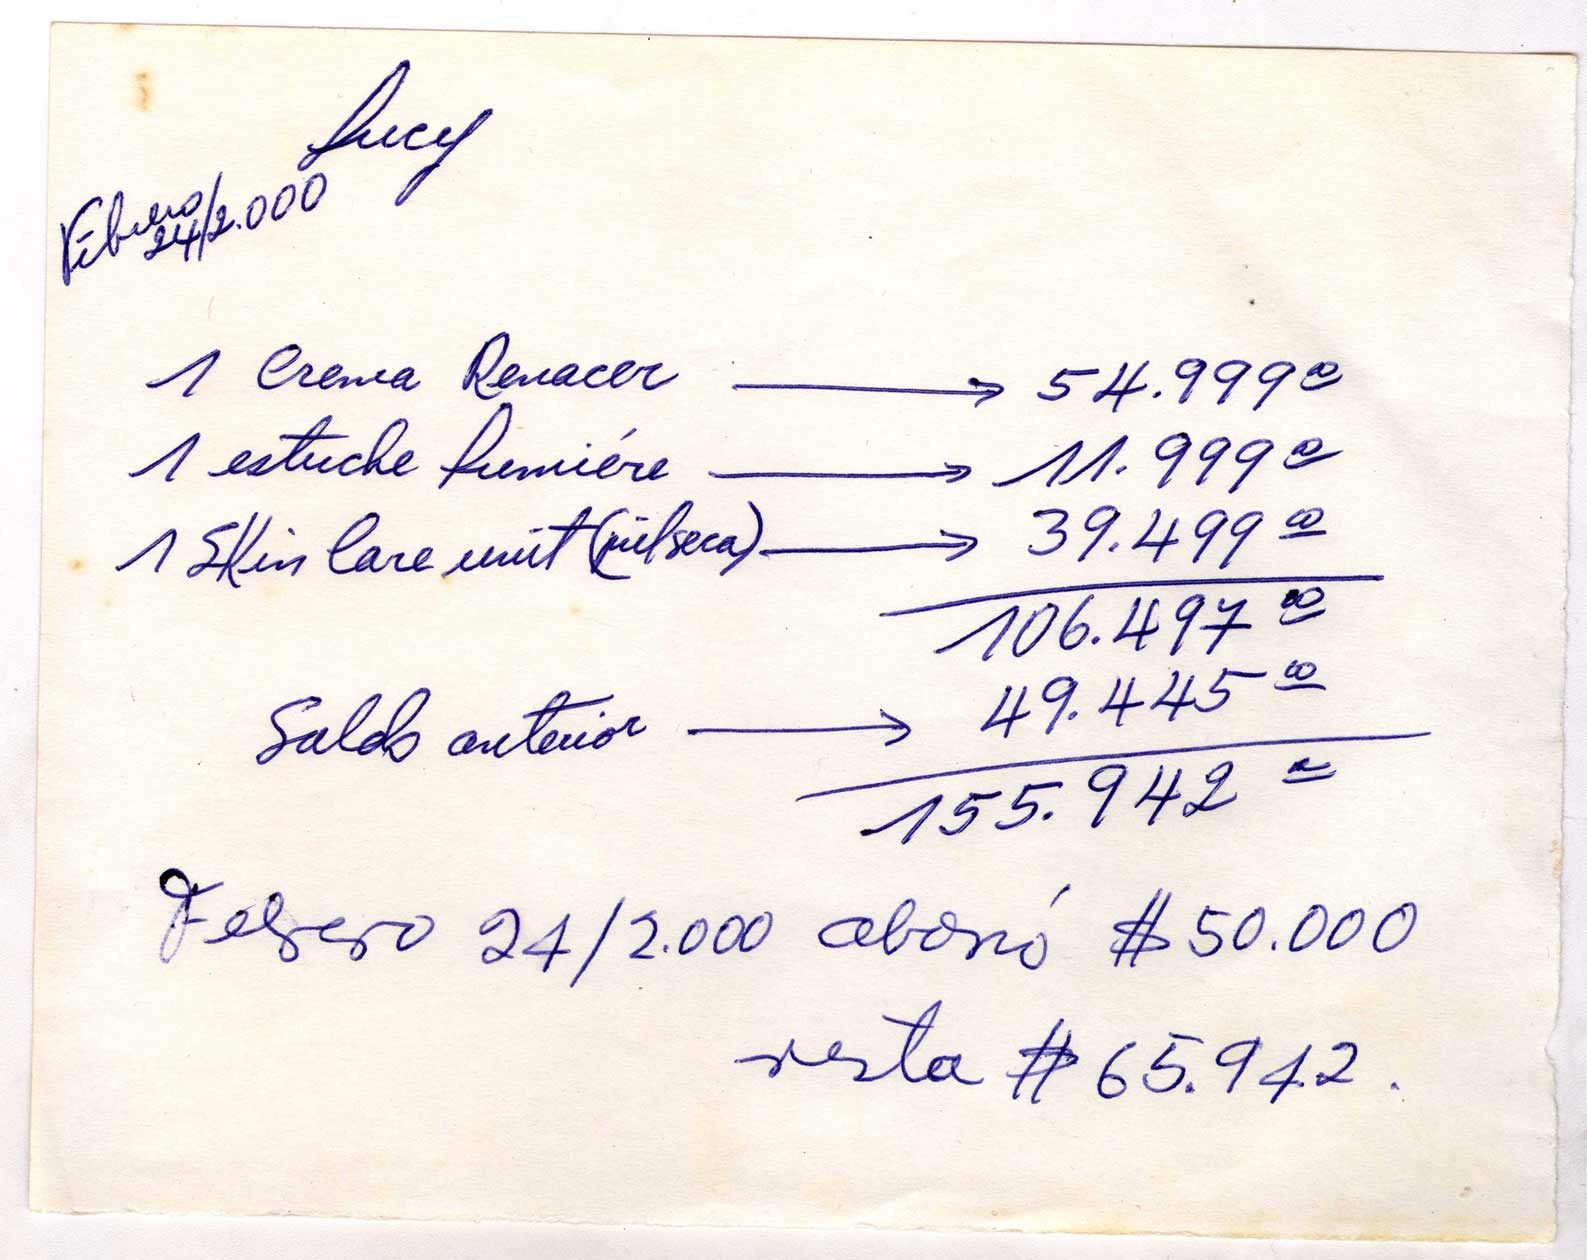 Lucy
Febrero
24/2.000
1 Crema Renacer → 54.999 00
1 estuche Lumiére → 11.999 00
1 Skin Care unit (piel seca) → 39.499 00
106.497 00
49.445 00
Saldo anterior →
155.942 00
Febrero 24/2.000 abonó $ 50.000
resta $ 65.942.